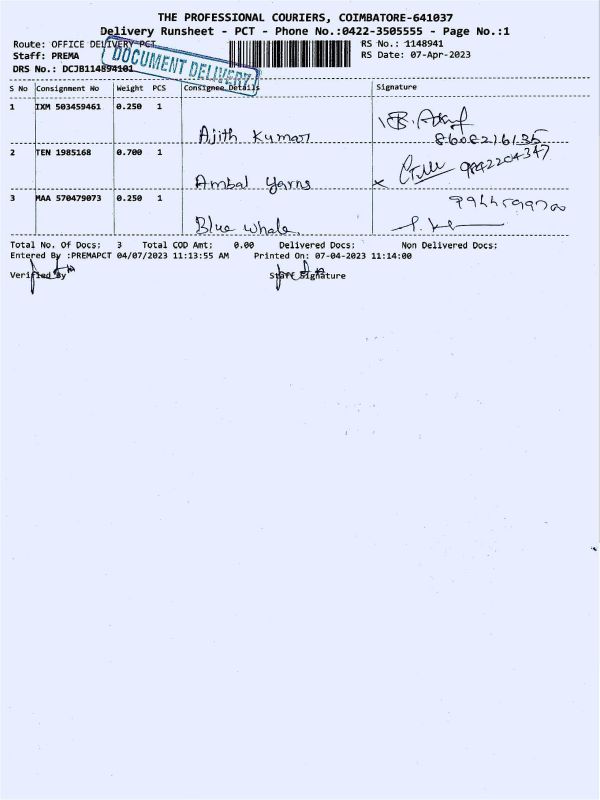 THE PROFESSIONAL COURIERS, COIMBATORE-641037
Delivery Runsheet - PCT - Phone No.:0422-3505555 - Page No.:1
Route: OFFICE DELIVERY PCT RS No.: 1148941
Staff: PREMA RS Date: 07-Apr-2023
DOCUMENT DELIVERY
DRS No.: DCJB114894101
S No Consignment No Weight PCS Consignee Details Signature
1 IXM 503459461 0.250 1
Ajith Kumar 8608216135
2 TEN 1985168 0.700 1 9842204347
Ambal Yarns
3 MAA 570479073 0.250 1
Blue whale
Total No. Of Docs: 3 Total COD Amt: 0.00 Delivered Docs: Non Delivered Docs:
Entered By :PREMAPCT 04/07/2023 11:13:55 AM Printed On: 07-04-2023 11:14:00
Verified By Staff Signature